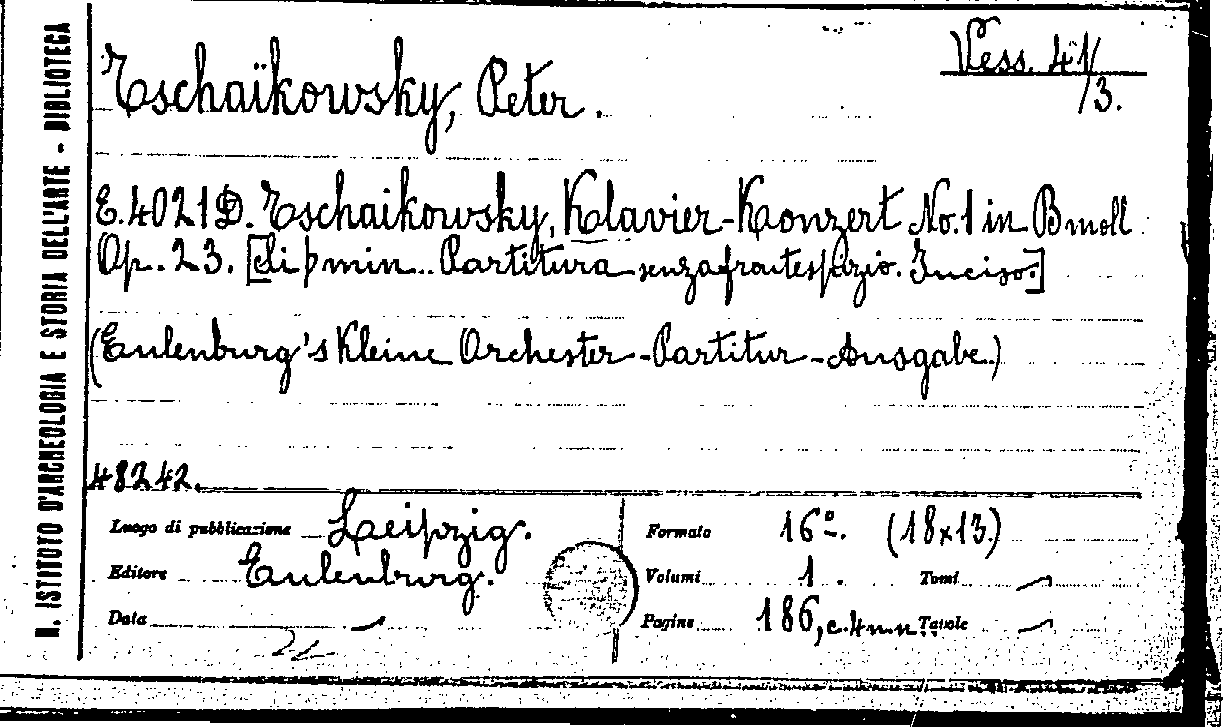 Vess. 41/
/3.
Tschaïkowsky, Peter.
E. 4021 D. Tschaikowsky, Klavier-Konzert No. 1 in B moll
Op. 23. [Si b min. Partitura senza frontespizio. Inciso.]
(Eulenburg's kleine Orchester-Partitur-Ausgabe.)
48242.
Luogo di pubblicazione Leipzig.
Editore Eulenburg.
Data —
Formato 16º. (18x13.)
Volumi 1. Tomi —
Pagine 186, c. 4 n.n. Tavole —
R. ISTITUTO D'ARCHEOLOGIA E STORIA DELL'ARTE - BIBLIOTECA